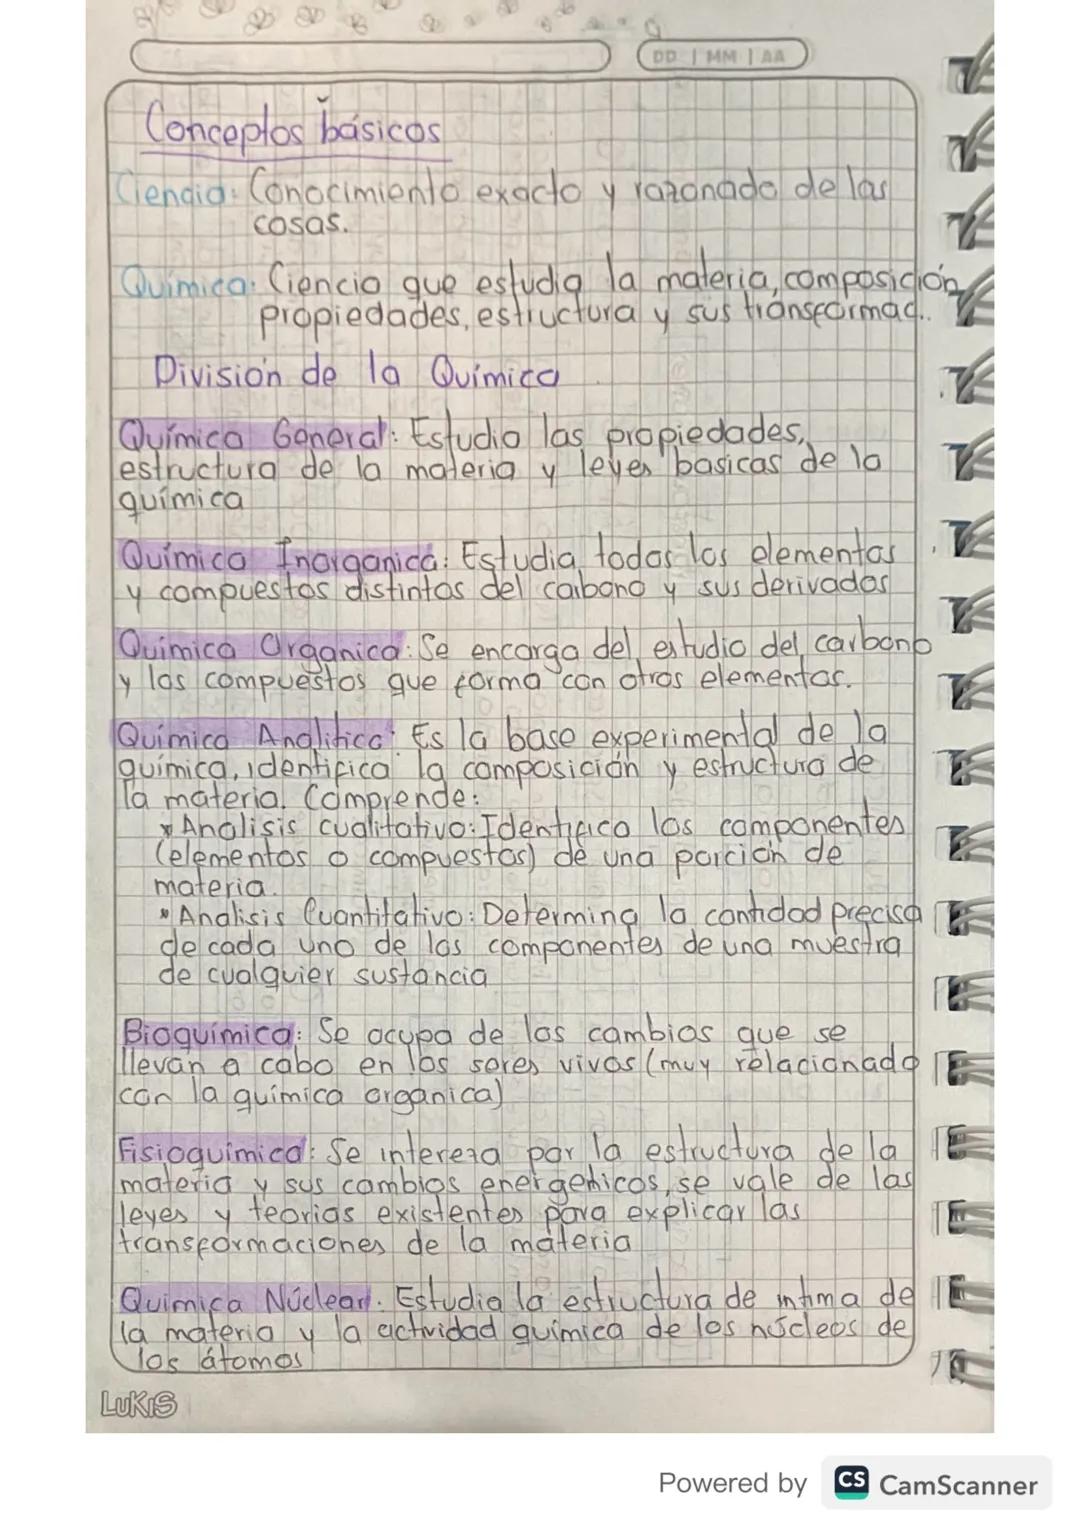 DD | MM | AA
Conceptos básicos
Ciencia: Conocimiento exacto y razonado de las
cosas.
Química: Ciencia que estudia la materia, composición
propiedades, estructura y sus transformac..
División de la Química
Química General: Estudia las propiedades,
estructura de la materia y leyes basicas de la
química
Química Inorganica: Estudia todos los elementos
y compuestos distintos del carbono y sus derivados
Química Organica: Se encarga del estudio del carbono
y los compuestos que forma con otros elementos.
Química Analitica: Es la base experimental de la
química, identifica la composición y estructura de
la materia. Comprende:
* Analisis cualitativo: Identifica los componentes
(elementos o compuestos) de una porción de
materia.
* Analisis Cuantitativo: Determina la cantidad precisa
de cada uno de los componentes de una muestra
de cualquier sustancia
Bioquímica: Se ocupa de los cambios que se
llevan a cabo en los seres vivos (muy relacionado
con la química organica)
Fisioquímica: Se intereza por la estructura de la
materia y sus cambios energeticos, se vale de las
leyes y teorias existentes para explicar las
transformaciones de la materia
Quimica Núclear. Estudia la estructura de intima de
la materia y la actividad química de los núcleos de
los átomos
LUKIS
Powered by CS CamScanner